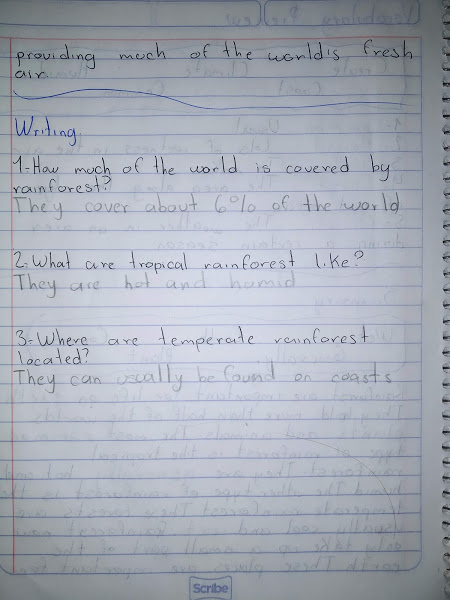 providing much of the world's fresh
air.
Writing
1-How much of the world is covered by
rainforest?
They cover about 6% of the world
2-What are tropical rainforest like?
They are hot and humid
3-Where are temperate rainforest
located?
They can usually be found on coasts
Scribe